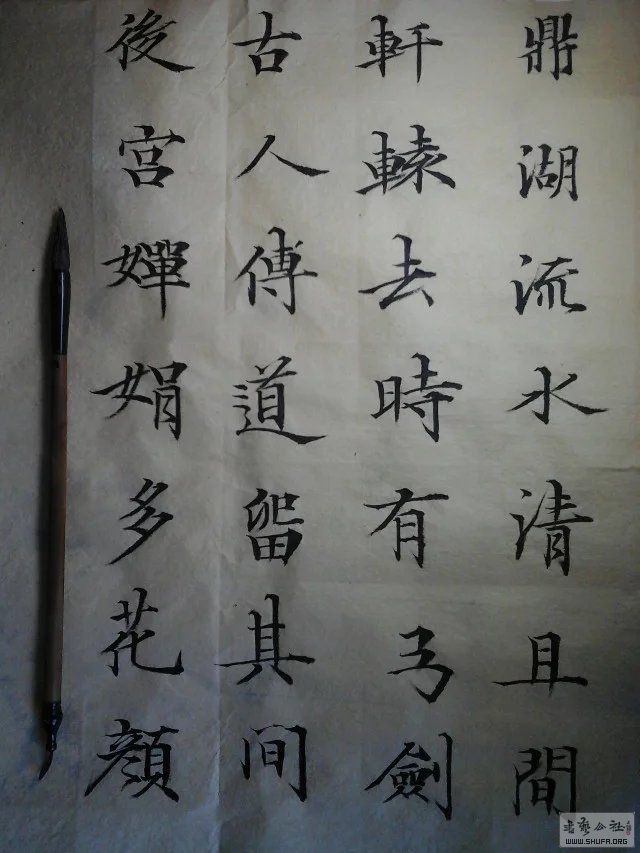 鼎湖流水清且間
軒轅去時有弓劍
古人傳道留其間
後宮嬋娟多花顔
书艺公社
WWW.SHUFA.ORG